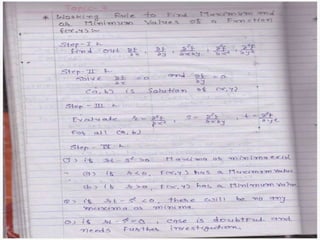 * Working Rule to Find Maximum and
or Minimum Values of a Function
f(x,y) :-
Step-I :-
find out ∂f/∂x, ∂f/∂y, ∂²f/∂x∂y, ∂²f/∂x², ∂²f/∂y²
Step-II :-
Solve ∂f/∂x = 0 and ∂f/∂y = 0
(a,b) is solution of (x,y)
Step-III :-
Evaluate r = ∂²f/∂x², s = ∂²f/∂x∂y, t = ∂²f/∂y²
for all (a,b)
Step-IV :-
(1) if rt - s² > 0, Maxima or minima exist
(a) if r < 0, F(x,y) has a Maximum Value
(b) if r > 0, F(x,y) has a Minimum Value
2) if rt - s² < 0, there will be no any
maxima or minima.
3) if rt - s² = 0, case is doubtful and
needs further investigation.